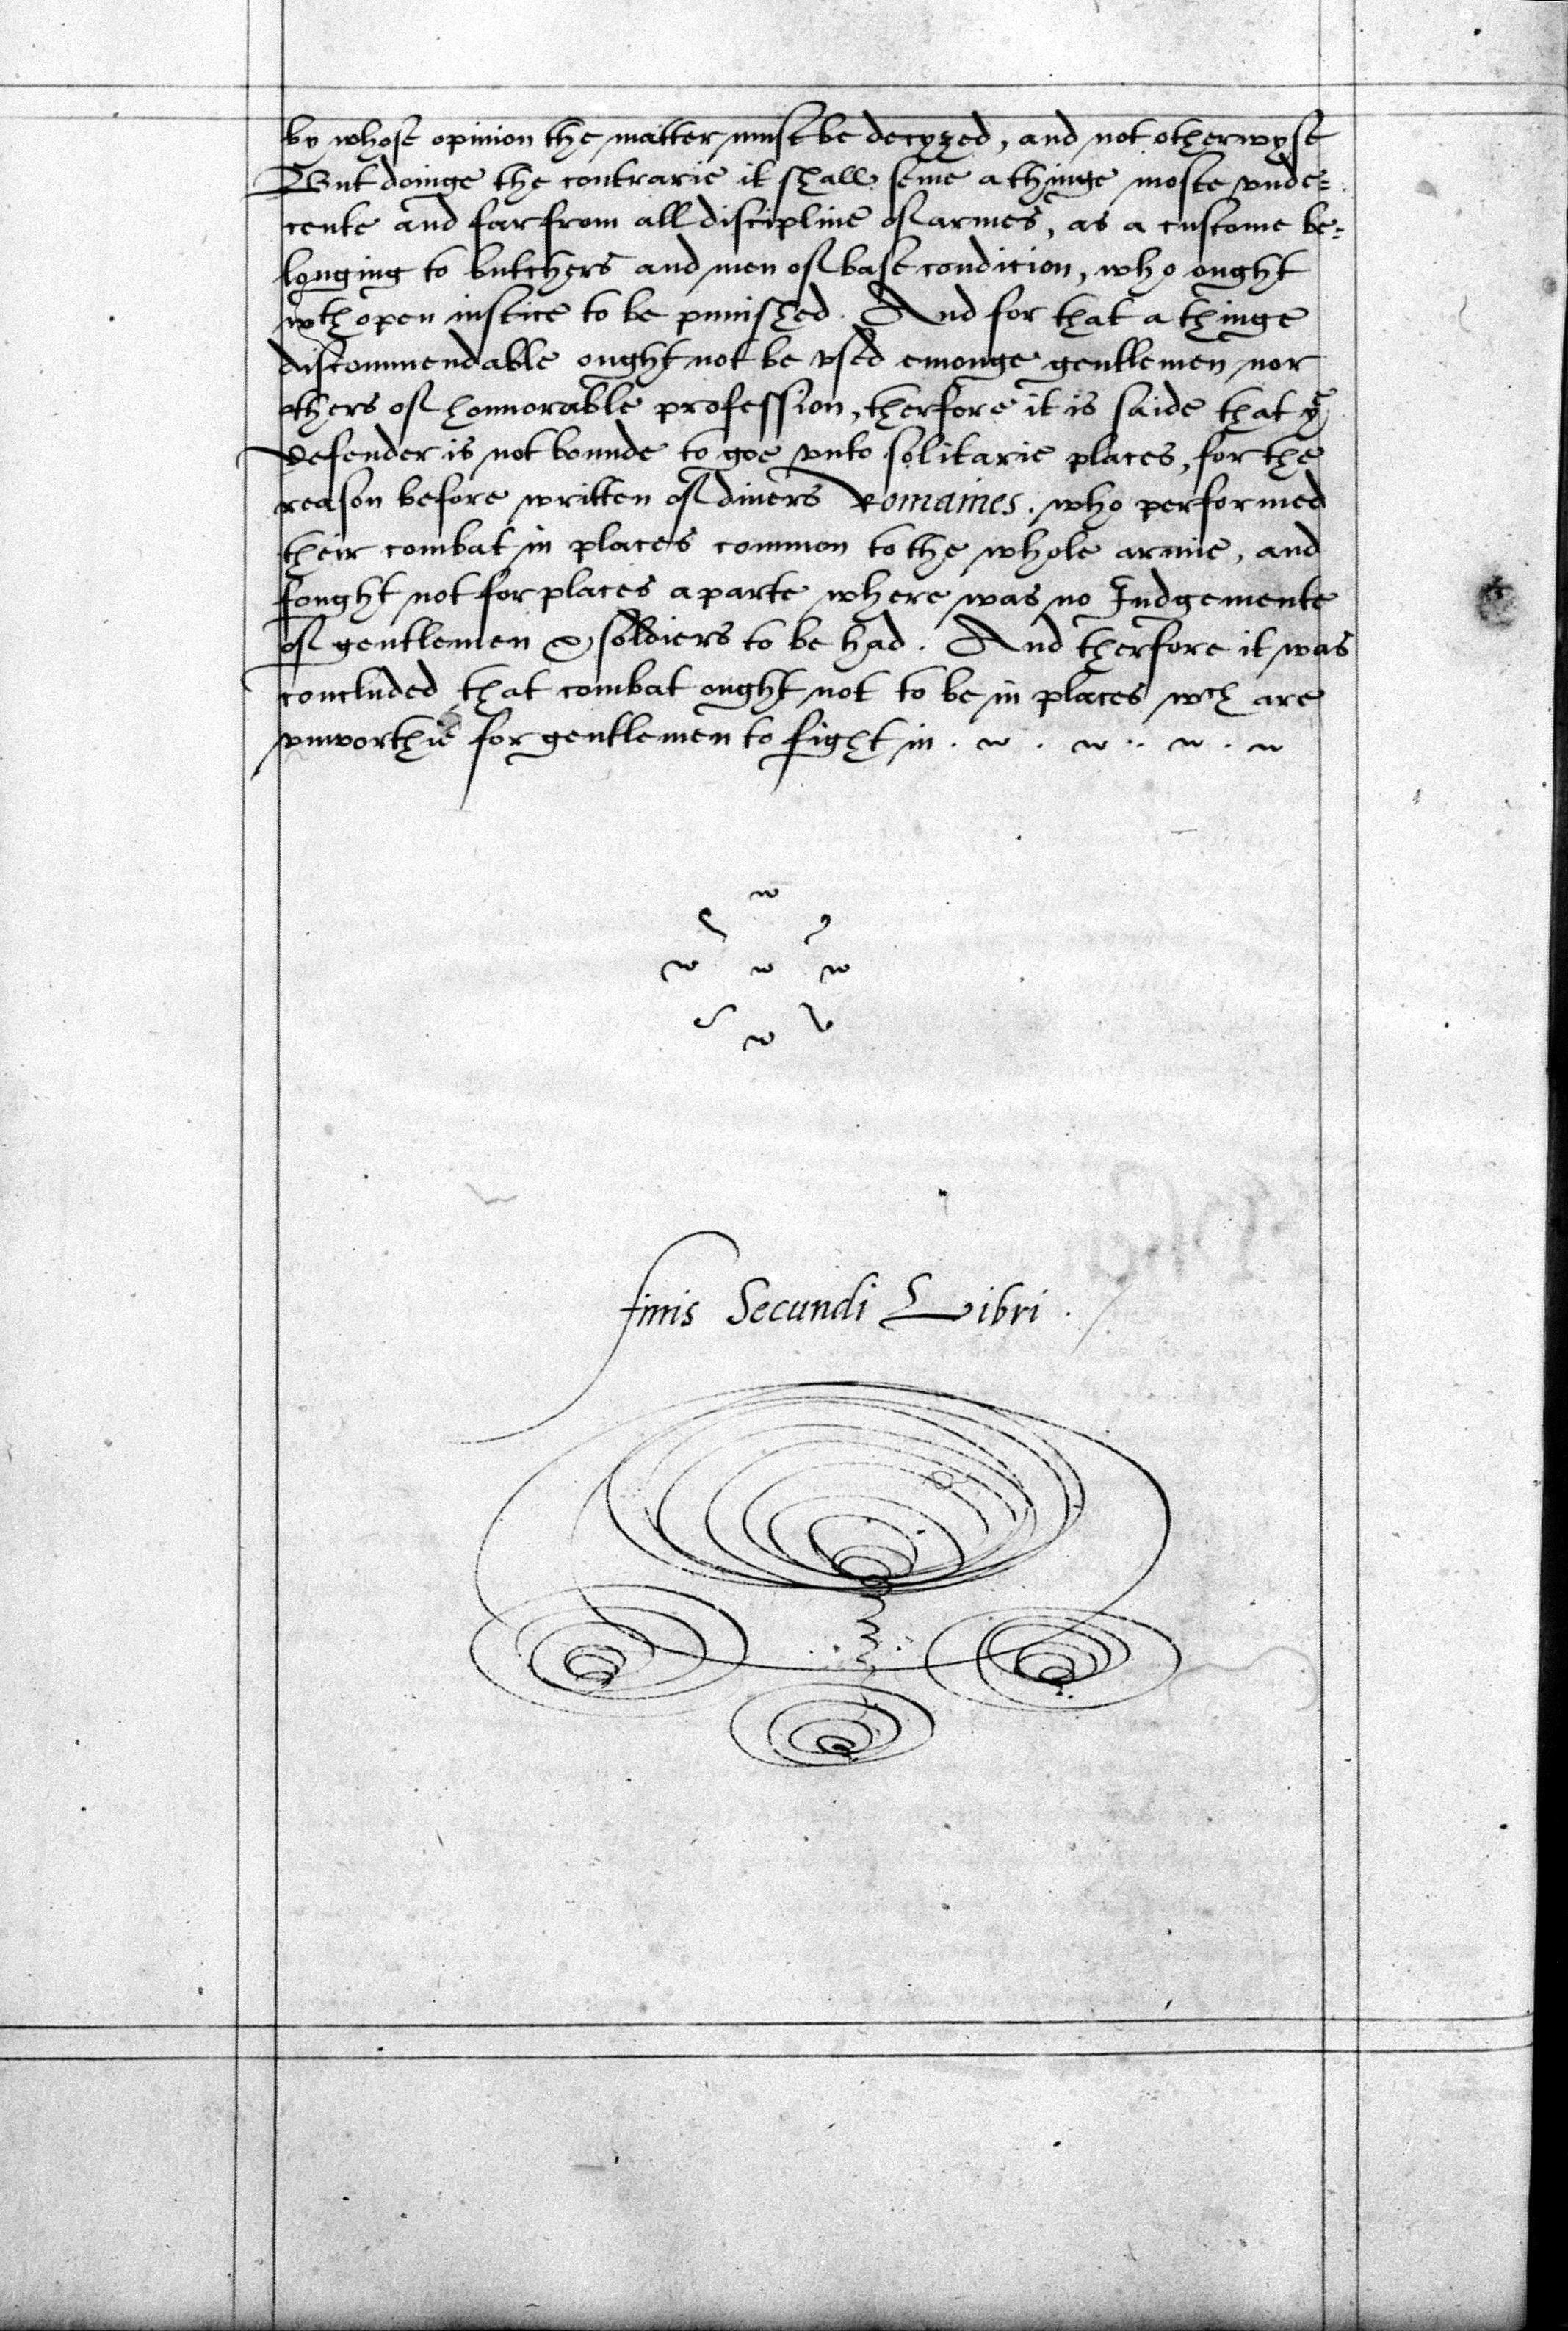 by whose opinion the matter must be decyzed, and not otherwyse
But doinge the contrarie it shall seme a thinge moste vnde=
cente and far from all discipline of armes, as a custome be=
longing to butchers and men of base condicion, who ought
wth open iustice to be punished. And for that a thinge
discommendable ought not be vsed emonge gentlemen nor
others of honnorable profession, therfore it is saide that ye
defender is not bounde to goe vnto solitarie places, for the
reason before written of diuers Romaines. who performed
their combat in places common to the whole armie, and
fought not for places aparte where was no Iudgemente
of gentlemen & soldiers to be had. And therfore it was
concluded that combat ought not to be in places wch are
vnworthie for gentlemen to fight in.
finis Secundi Libri.